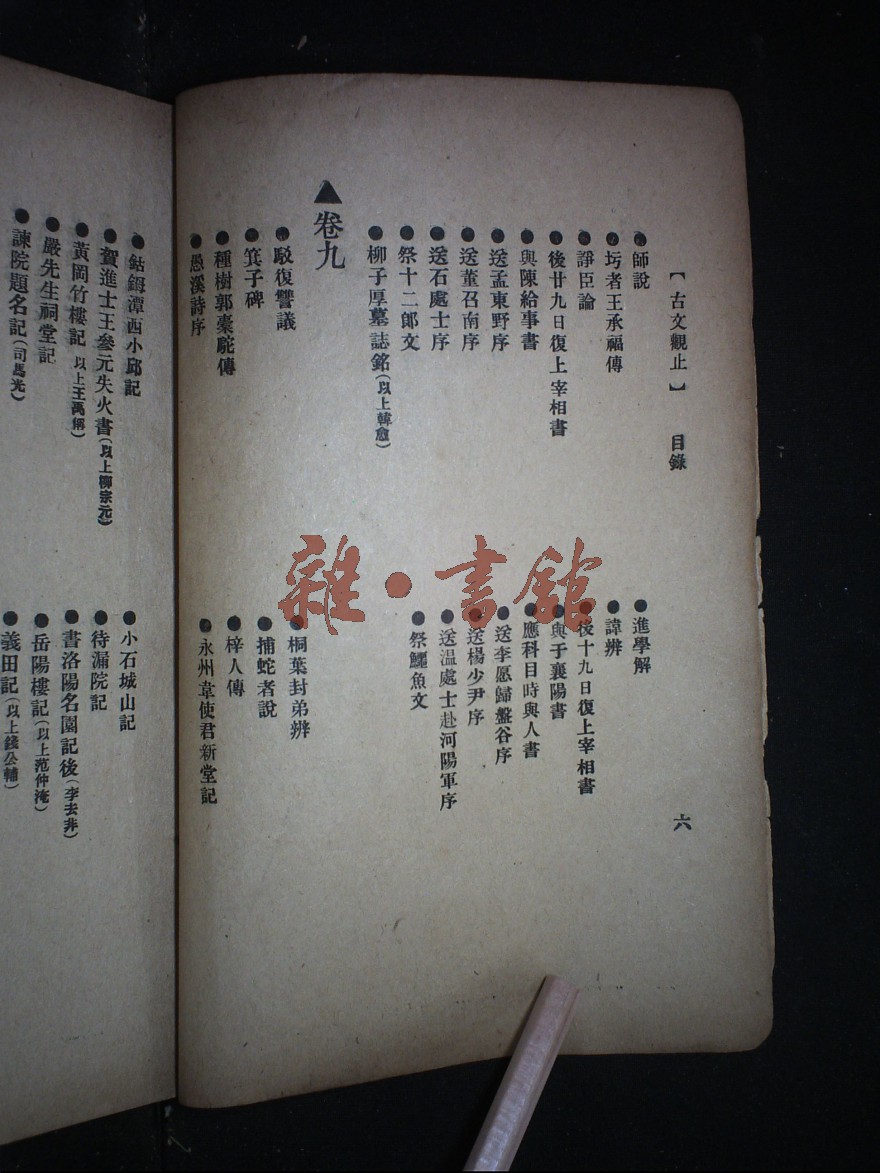 【古文觀止】 目錄 六
●師說 ●進學解
●圬者王承福傳 ●諱辨
●諍臣論 ●後十九日復上宰相書
●後廿九日復上宰相書 ●與于襄陽書
●與陳給事書 ●應科目時與人書
●送孟東野序 ●送李愿歸盤谷序
●送董召南序 ●送楊少尹序
●送石處士序 ●送温處士赴河陽軍序
●祭十二郎文 ●祭鱷魚文
●柳子厚墓誌銘(以上韓愈)
▲卷九
●駁復讐議 ●桐葉封弟辨
●箕子碑 ●捕蛇者說
●種樹郭橐駝傳 ●梓人傳
●愚溪詩序 ●永州韋使君新堂記
●鈷鉧潭西小邱記 ●小石城山記
●賀進士王參元失火書(以上柳宗元) ●待漏院記
●黃岡竹樓記 以上王禹偁) ●書洛陽名園記後(李去非)
●嚴先生祠堂記 ●岳陽樓記(以上范仲淹)
●諫院題名記(司馬光) ●義田記(以上錢公輔)
雜·書館